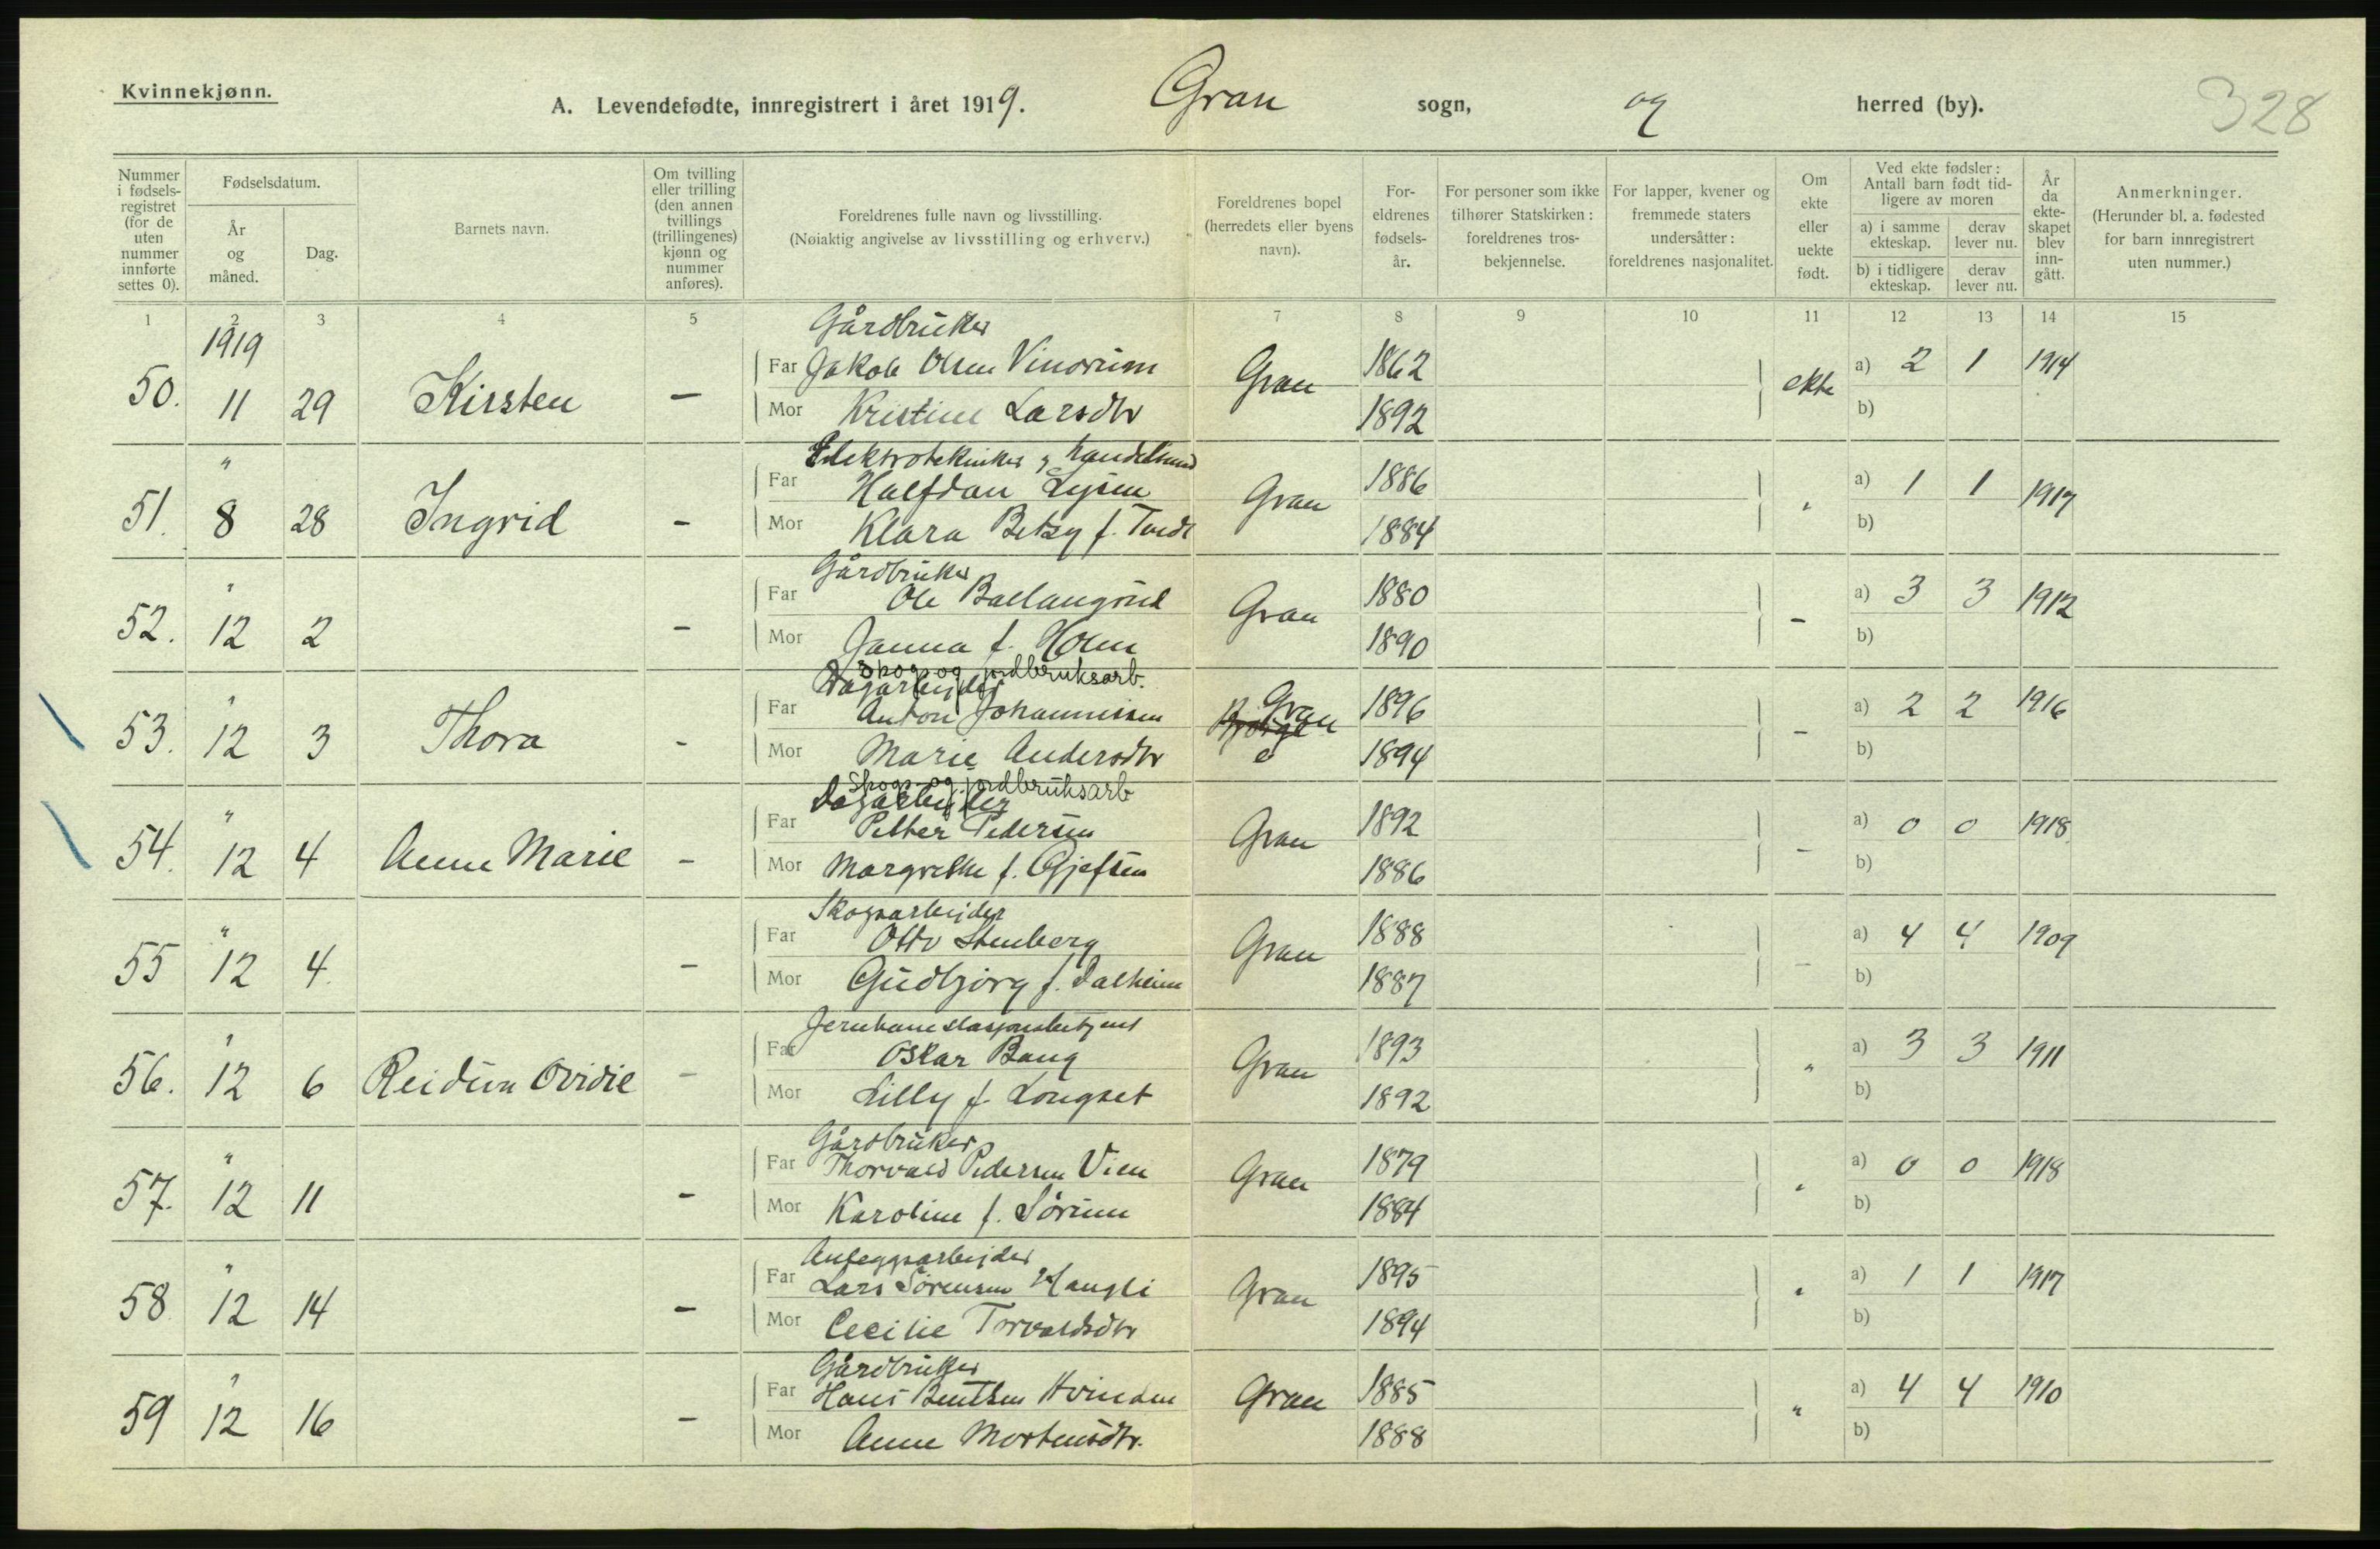 Kvinnekjønn.
A. Levendefødte, innregistrert i året 1919. Gran sogn, og herred (by). 328
Nummer i fødsels-registret (for de uten nummer innførte settes 0).
Fødselsdatum.
År og måned.
Dag.
Barnets navn.
Om tvilling eller trilling (den annen tvillings (trillingenes) kjønn og nummer anføres).
Foreldrenes fulle navn og livsstilling.
(Nøiaktig angivelse av livsstilling og erhverv.)
Foreldrenes bopel (herredets eller byens navn).
For-eldrenes fødsels-år.
For personer som ikke tilhører Statskirken: foreldrenes tros-bekjennelse.
For lapper, kvener og fremmede staters undersåtter: foreldrenes nasjonalitet.
Om ekte eller uekte født.
Ved ekte fødsler: Antall barn født tid-ligere av moren
a) i samme ekteskap. derav lever nu.
b) i tidligere ekteskap. derav lever nu.
År da ekte-skapet blev inn-gått.
Anmerkninger.
(Herunder bl. a. fødested for barn innregistrert uten nummer.)
1 2 3 4 5 7 8 9 10 11 12 13 14 15
1919
Gårdbruker
50. 11 29 Kirsten — Far Jakob Olsen Vinorum Gran 1862 ekte a) 2 1 1914
Mor Kristine Larsdtr 1892 b)
Elektrotekniker & Handelsmand
51. " 8 28 Ingrid - Far Halfdan Lysen Gran 1886 " a) 1 1 1917
Mor Klara Betsy f. 1884 b)
Gårdbruker
52. " 12 2 - Far Ole Ballangrud Gran 1880 - a) 3 3 1912
Mor Janna f. Holm 1890 b)
Skogs og jordbruksarb.
Dagarbeijder
53. " 12 3 Thora - Far Anton Johannissen Gran 1896 - a) 2 2 1916
Mor Marie Andersdtr 1894 b)
Skogs- og jordbruksarb
Dagarbeijder
54. " 12 4 Anne Marie - Far Petter Pedersen Gran 1892 - a) 0 0 1918
Mor Margrethe f. Gjefsen 1886 b)
Skogsarbeijder
55 " 12 4. - Far Otto Stenberg Gran 1888 - a) 4 4 1909
Mor Gudbjørg f. Dalheim 1887 b)
Jernbanestasjonsbetjent
56. " 12 6 Reidun Ovidie - Far Oskar Bang Gran 1893 " a) 3 3 1911
Mor Lilly f. Longset 1892 b)
Gårdbruker
57. " 12 11 - Far Thorvald Pedersen Vien Gran 1879 " a) 0 0 1918
Mor Karoline f. Sørum 1884 b)
Anleggsarbeijder
58 " 12 14 - Far Lars Sørensen Haugli Gran 1895 " a) 1 1 1917
Mor Cecilie Torvaldsdtr 1894 b)
Gårdbruker
59 " 12 16 - Far Hans Bentsen Hvinden Gran 1885 " a) 4 4 1910
Mor Anne Mortensdtr. 1888 b)